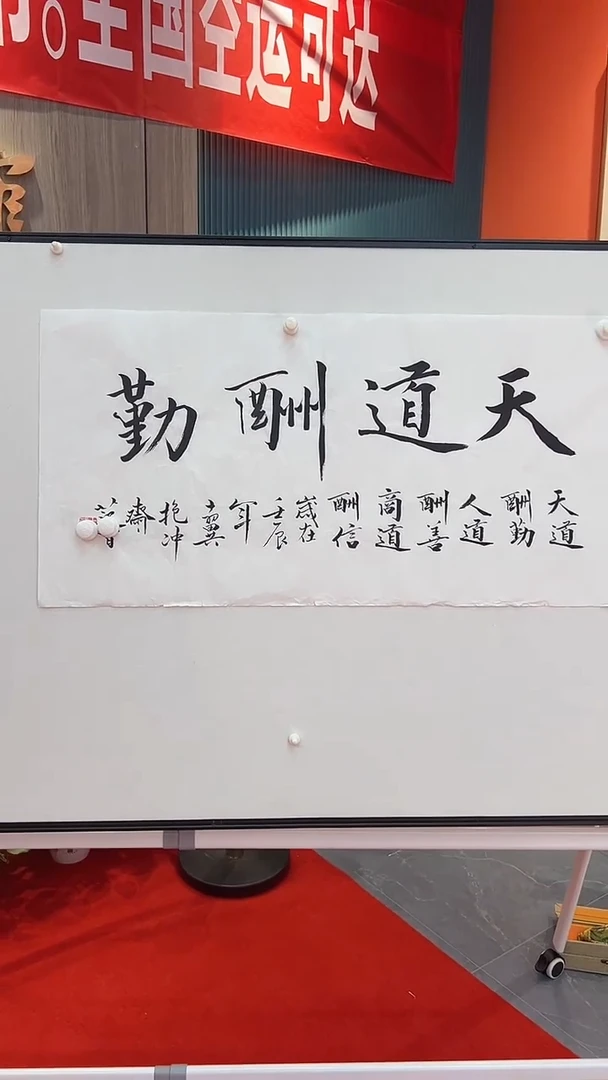 。全国空运可达
天道酬勤
天道
酬勤
人道
酬善
商道
酬信
歲在
壬辰
年
抱冲
齋